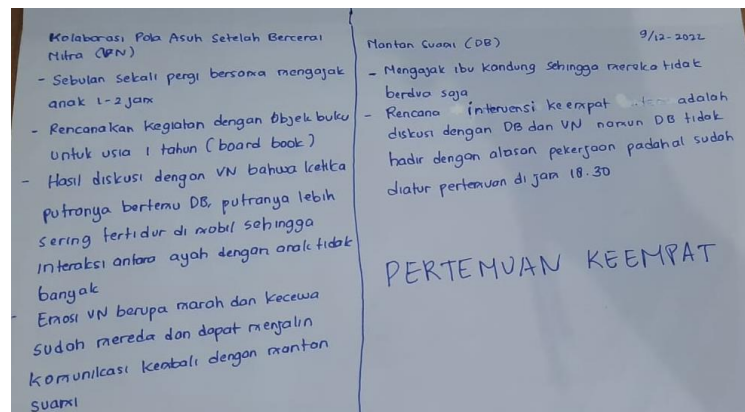 Kolaborasi Pola Asuh Setelah Bercerai
Mitra (VN)
- Sebulan sekali pergi bersama mengajak
anak 1-2 jam
- Rencanakan kegiatan dengan objek buku
untuk usia 1 tahun (board book)
- Hasil diskusi dengan VN bahwa ketika
putranya bertemu DB, putranya lebih
sering tertidur di mobil sehingga
interaksi antara ayah dengan anak tidak
banyak
- Emosi VN berupa marah dan kecewa
sudah mereda dan dapat menjalin
komunikasi kembali dengan mantan
suami
9/12-2022
Mantan Suami (DB)
- Mengajak ibu kandung sehingga mereka tidak
berdua saja
- Rencana intervensi keempat adalah
diskusi dengan DB dan VN namun DB tidak
hadir dengan alasan pekerjaan padahal sudah
diatur pertemuan di jam 18.30
PERTEMUAN KEEMPAT